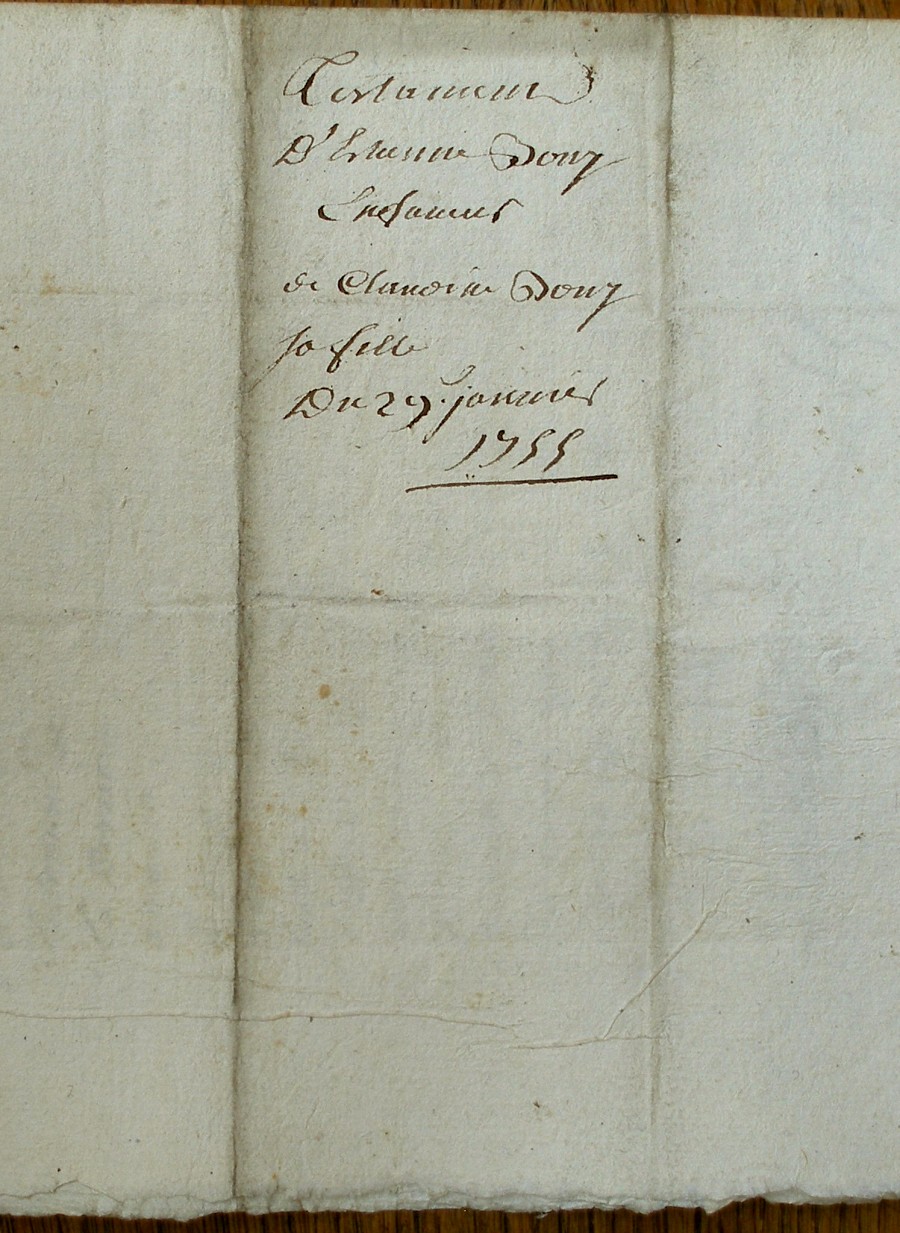 Testament
D'Estienne Douz
En faveur
de Claudine Douz
sa fille
Du 29e. janvier
1755